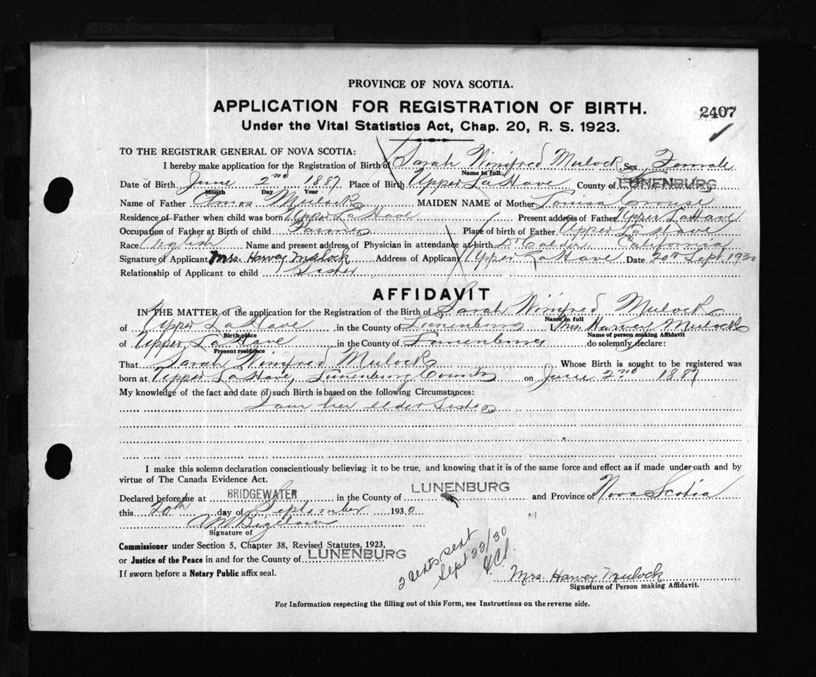 PROVINCE OF NOVA SCOTIA.
APPLICATION FOR REGISTRATION OF BIRTH.
2407
Under the Vital Statistics Act, Chap. 20, R. S. 1923.
TO THE REGISTRAR GENERAL OF NOVA SCOTIA:
I hereby make application for the Registration of Birth of Sarah Winifred Mulock Sex Female
Name in full
Date of Birth June 2nd 1887 Place of Birth Upper LaHave County of LUNENBURG
Month Day Year
Name of Father Amos Mulock MAIDEN NAME of Mother Louisa Crouse
Residence of Father when child was born Upper LaHave Present address of Father Upper LaHave
Occupation of Father at Birth of child Farmer Place of birth of Father Upper LaHave
Race English Name and present address of Physician in attendance at birth Dr Calder California
Signature of Applicant Mrs. Harvey Mulock Address of Applicant Upper LaHave Date 20th Sept. 1930
Relationship of Applicant to child Sister
AFFIDAVIT
IN THE MATTER of the application for the Registration of the Birth of Sarah Winifred Mulock
Name in full
of Upper LaHave in the County of Lunenburg I, Mrs Harvey Mulock
Birth place Name of person making Affidavit
of Upper LaHave in the County of Lunenburg do solemnly declare:
Present residence
That Sarah Winifred Mulock Whose Birth is sought to be registered was
born at Upper LaHave, Lunenburg County on June 2nd 1887
My knowledge of the fact and date of such Birth is based on the following Circumstances:
I am her elder sister
I make this solemn declaration conscientiously believing it to be true, and knowing that it is of the same force and effect as if made under oath and by
virtue of The Canada Evidence Act.
Declared before me at BRIDGEWATER in the County of LUNENBURG and Province of Nova Scotia
this 20th day of September 1930
Signature of
Commissioner under Section 5, Chapter 38, Revised Statutes, 1923,
or Justice of the Peace in and for the County of LUNENBURG
If sworn before a Notary Public affix seal.
2 Certs sent
Sept 30/30
Mrs. Harvey Mulock
Signature of Person making Affidavit.
For Information respecting the filling out of this Form, see Instructions on the reverse side.